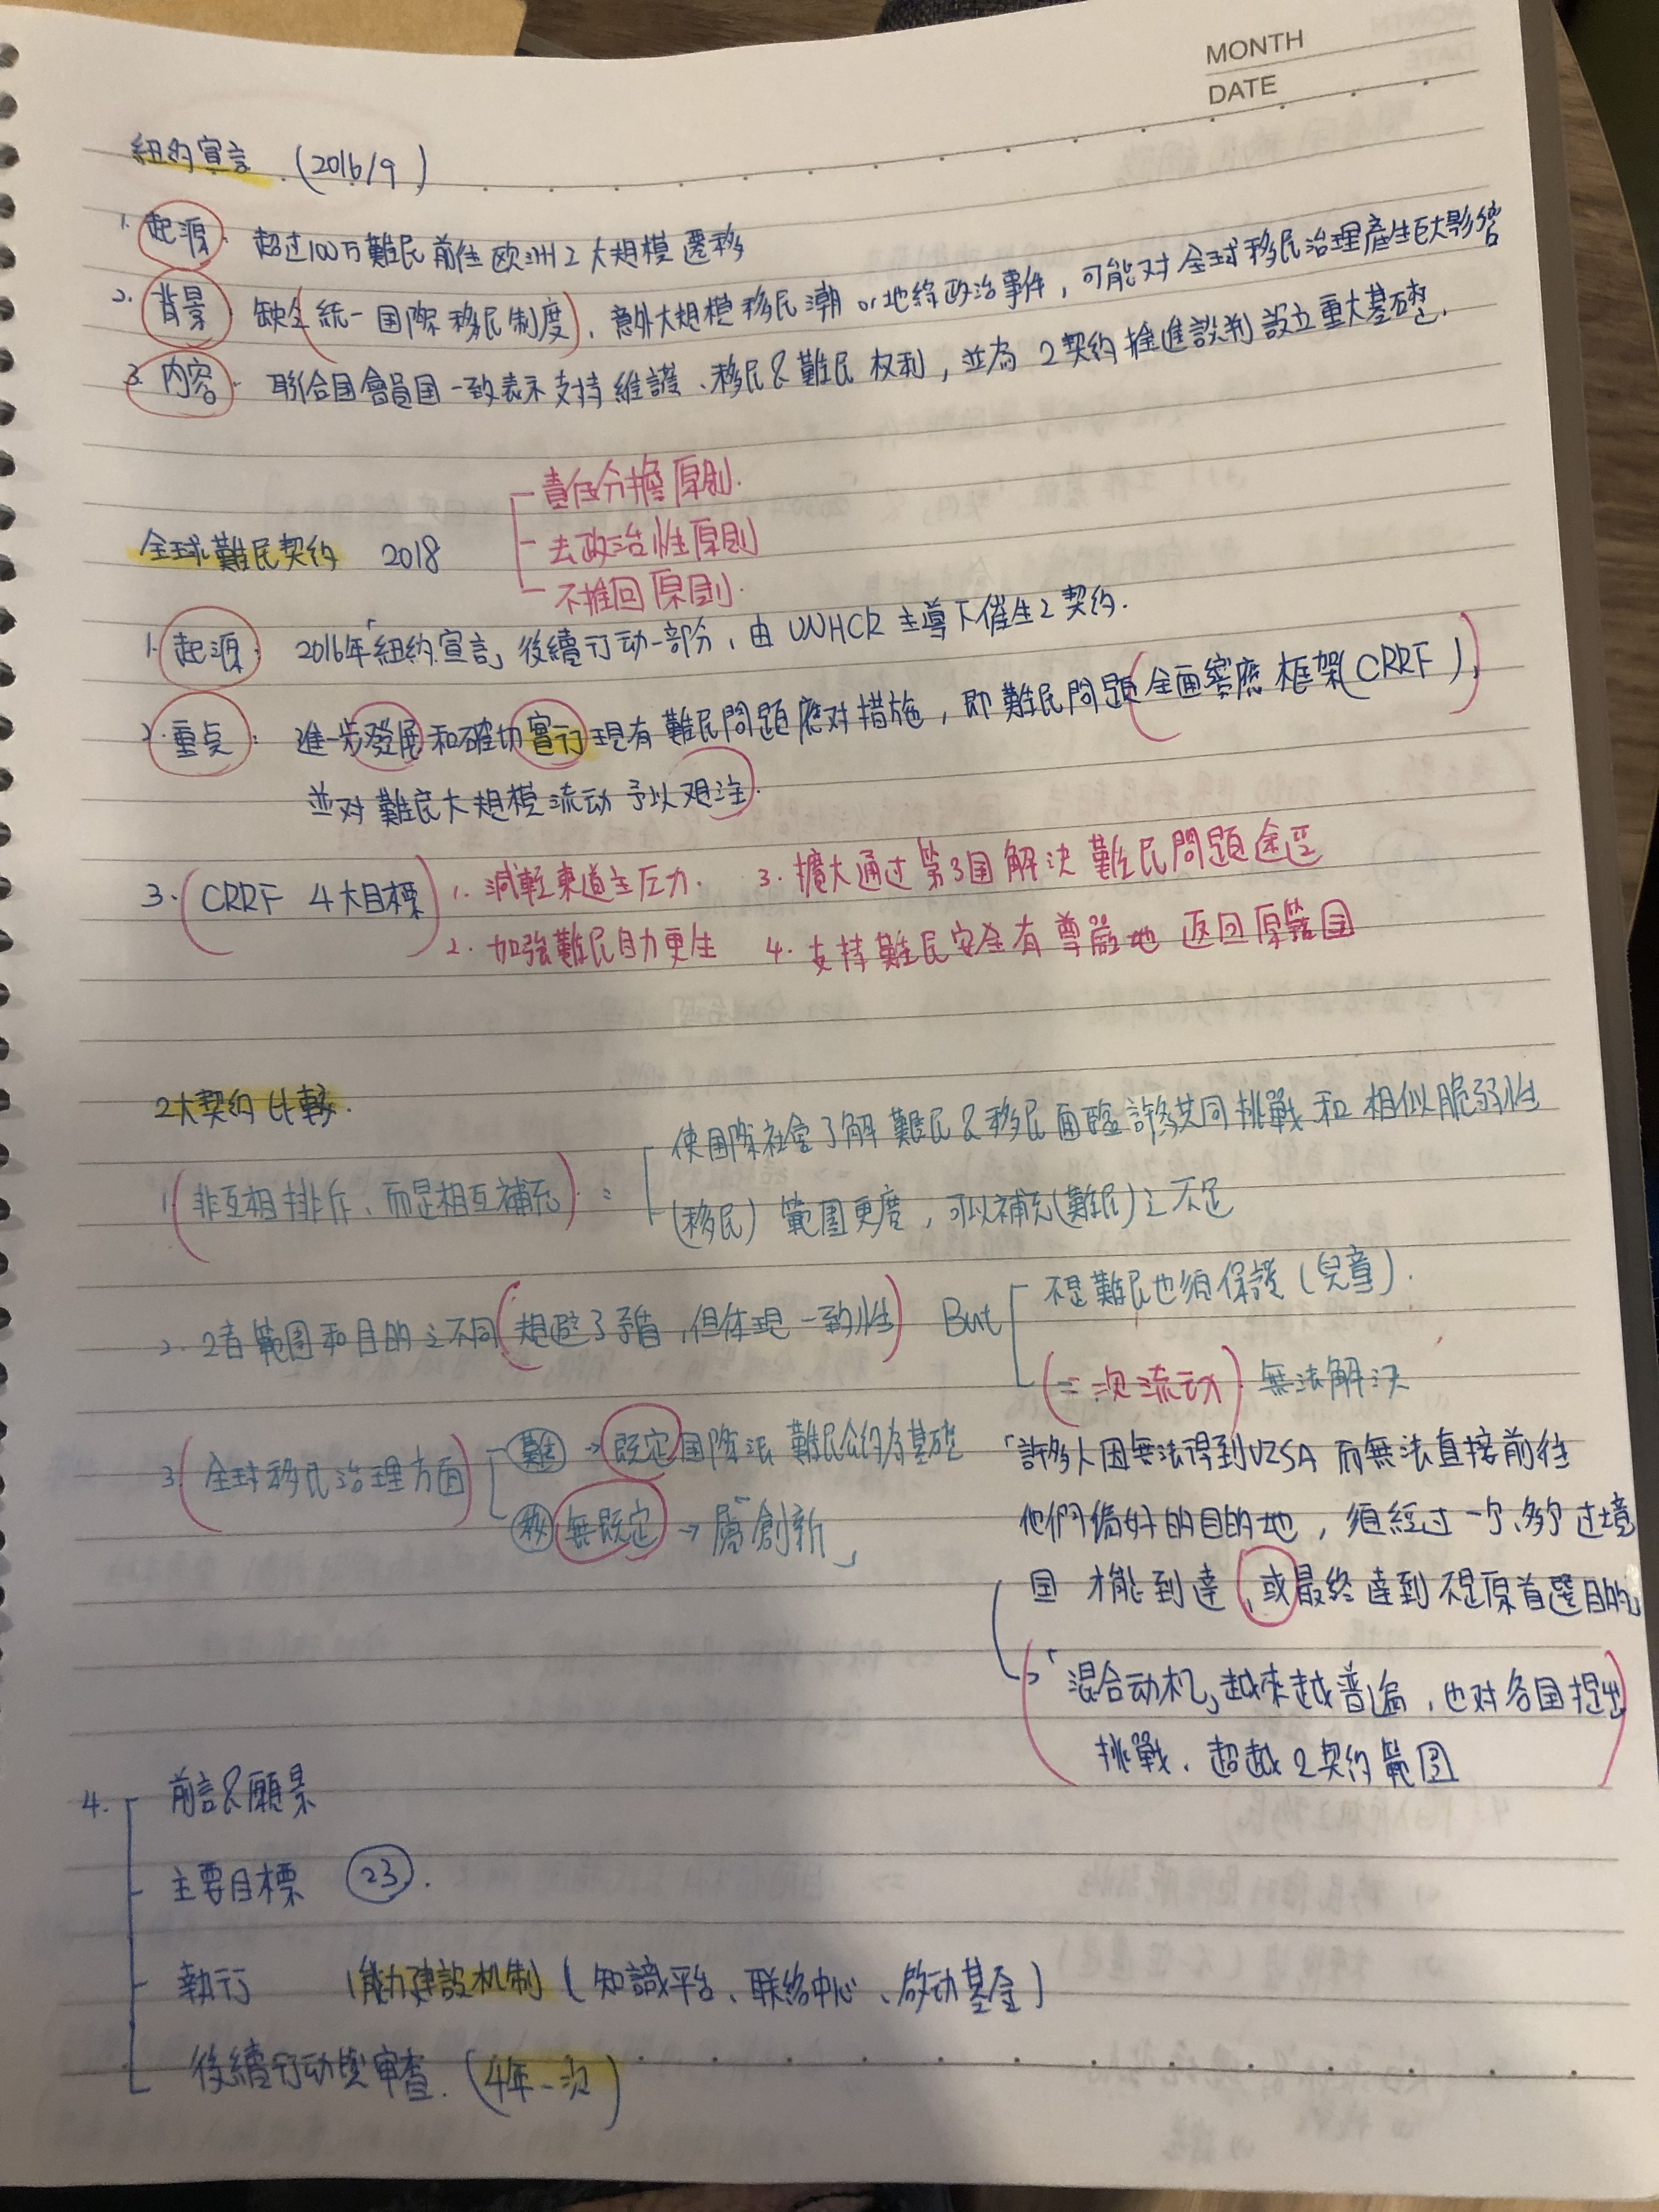 MONTH
DATE
紐約宣言 (2016/9)
1. 起源. 超过100万難民前往欧洲之大規模遷移
2. 背景. 缺乏(統一国際移民制度), 意外大規模移民潮 or 地緣政治事件, 可能对全球移民治理產生巨大影響
3. 內容. 联合国會員国一致表示支持維護、移民&難民权利, 並為2契約推進談判設立重大基礎.
責任分擔原則.
全球難民契約 2018 去政治性原則
不推回原則.
1. 起源. 2016年「紐約宣言」後續行动一部分, 由UNHCR主導下催生之契約.
2. 重点: 進一步發展和確切實行現有難民問題應対措施, 即難民問題(全面響應框架(CRRF)),
並对難民大規模流动予以关注.
3. (CRRF 4大目標) 1. 減輕東道主压力. 3. 擴大通过第3国解決難民問題途徑
2. 加強難民自力更生 4. 支持難民安全有尊嚴地返回原籍国
2大契約比較.
使国際社会了解難民&移民面臨許多共同挑戰和相似脆弱性
1. (非互相排斥、而是相互補充) :
(移民) 範圍更廣, 可以補充(難民)之不足
不是難民也須保護 (兒童).
2. 2者範圍和目的之不同(規避了矛盾, 但体現一致性) But
(二次流动) 無法解決
3. (全球移民治理方面) 難 → 既定国際法 難民公約為基礎
移 無既定 → 屬「創新」
「許多人因無法得到VISA而無法直接前往
他們偏好的目的地, 須經过一个、多个过境
国才能到達, 或最終達到不是原首選目的」
→ (「混合动机」越來越普遍, 也对各国提出
挑戰、超越2契約範圍)
4. 前言&願景
主要目標 23.
執行 能力建設机制 (知識平台、联絡中心、啟动基金)
後續行动與審查. (4年一次)